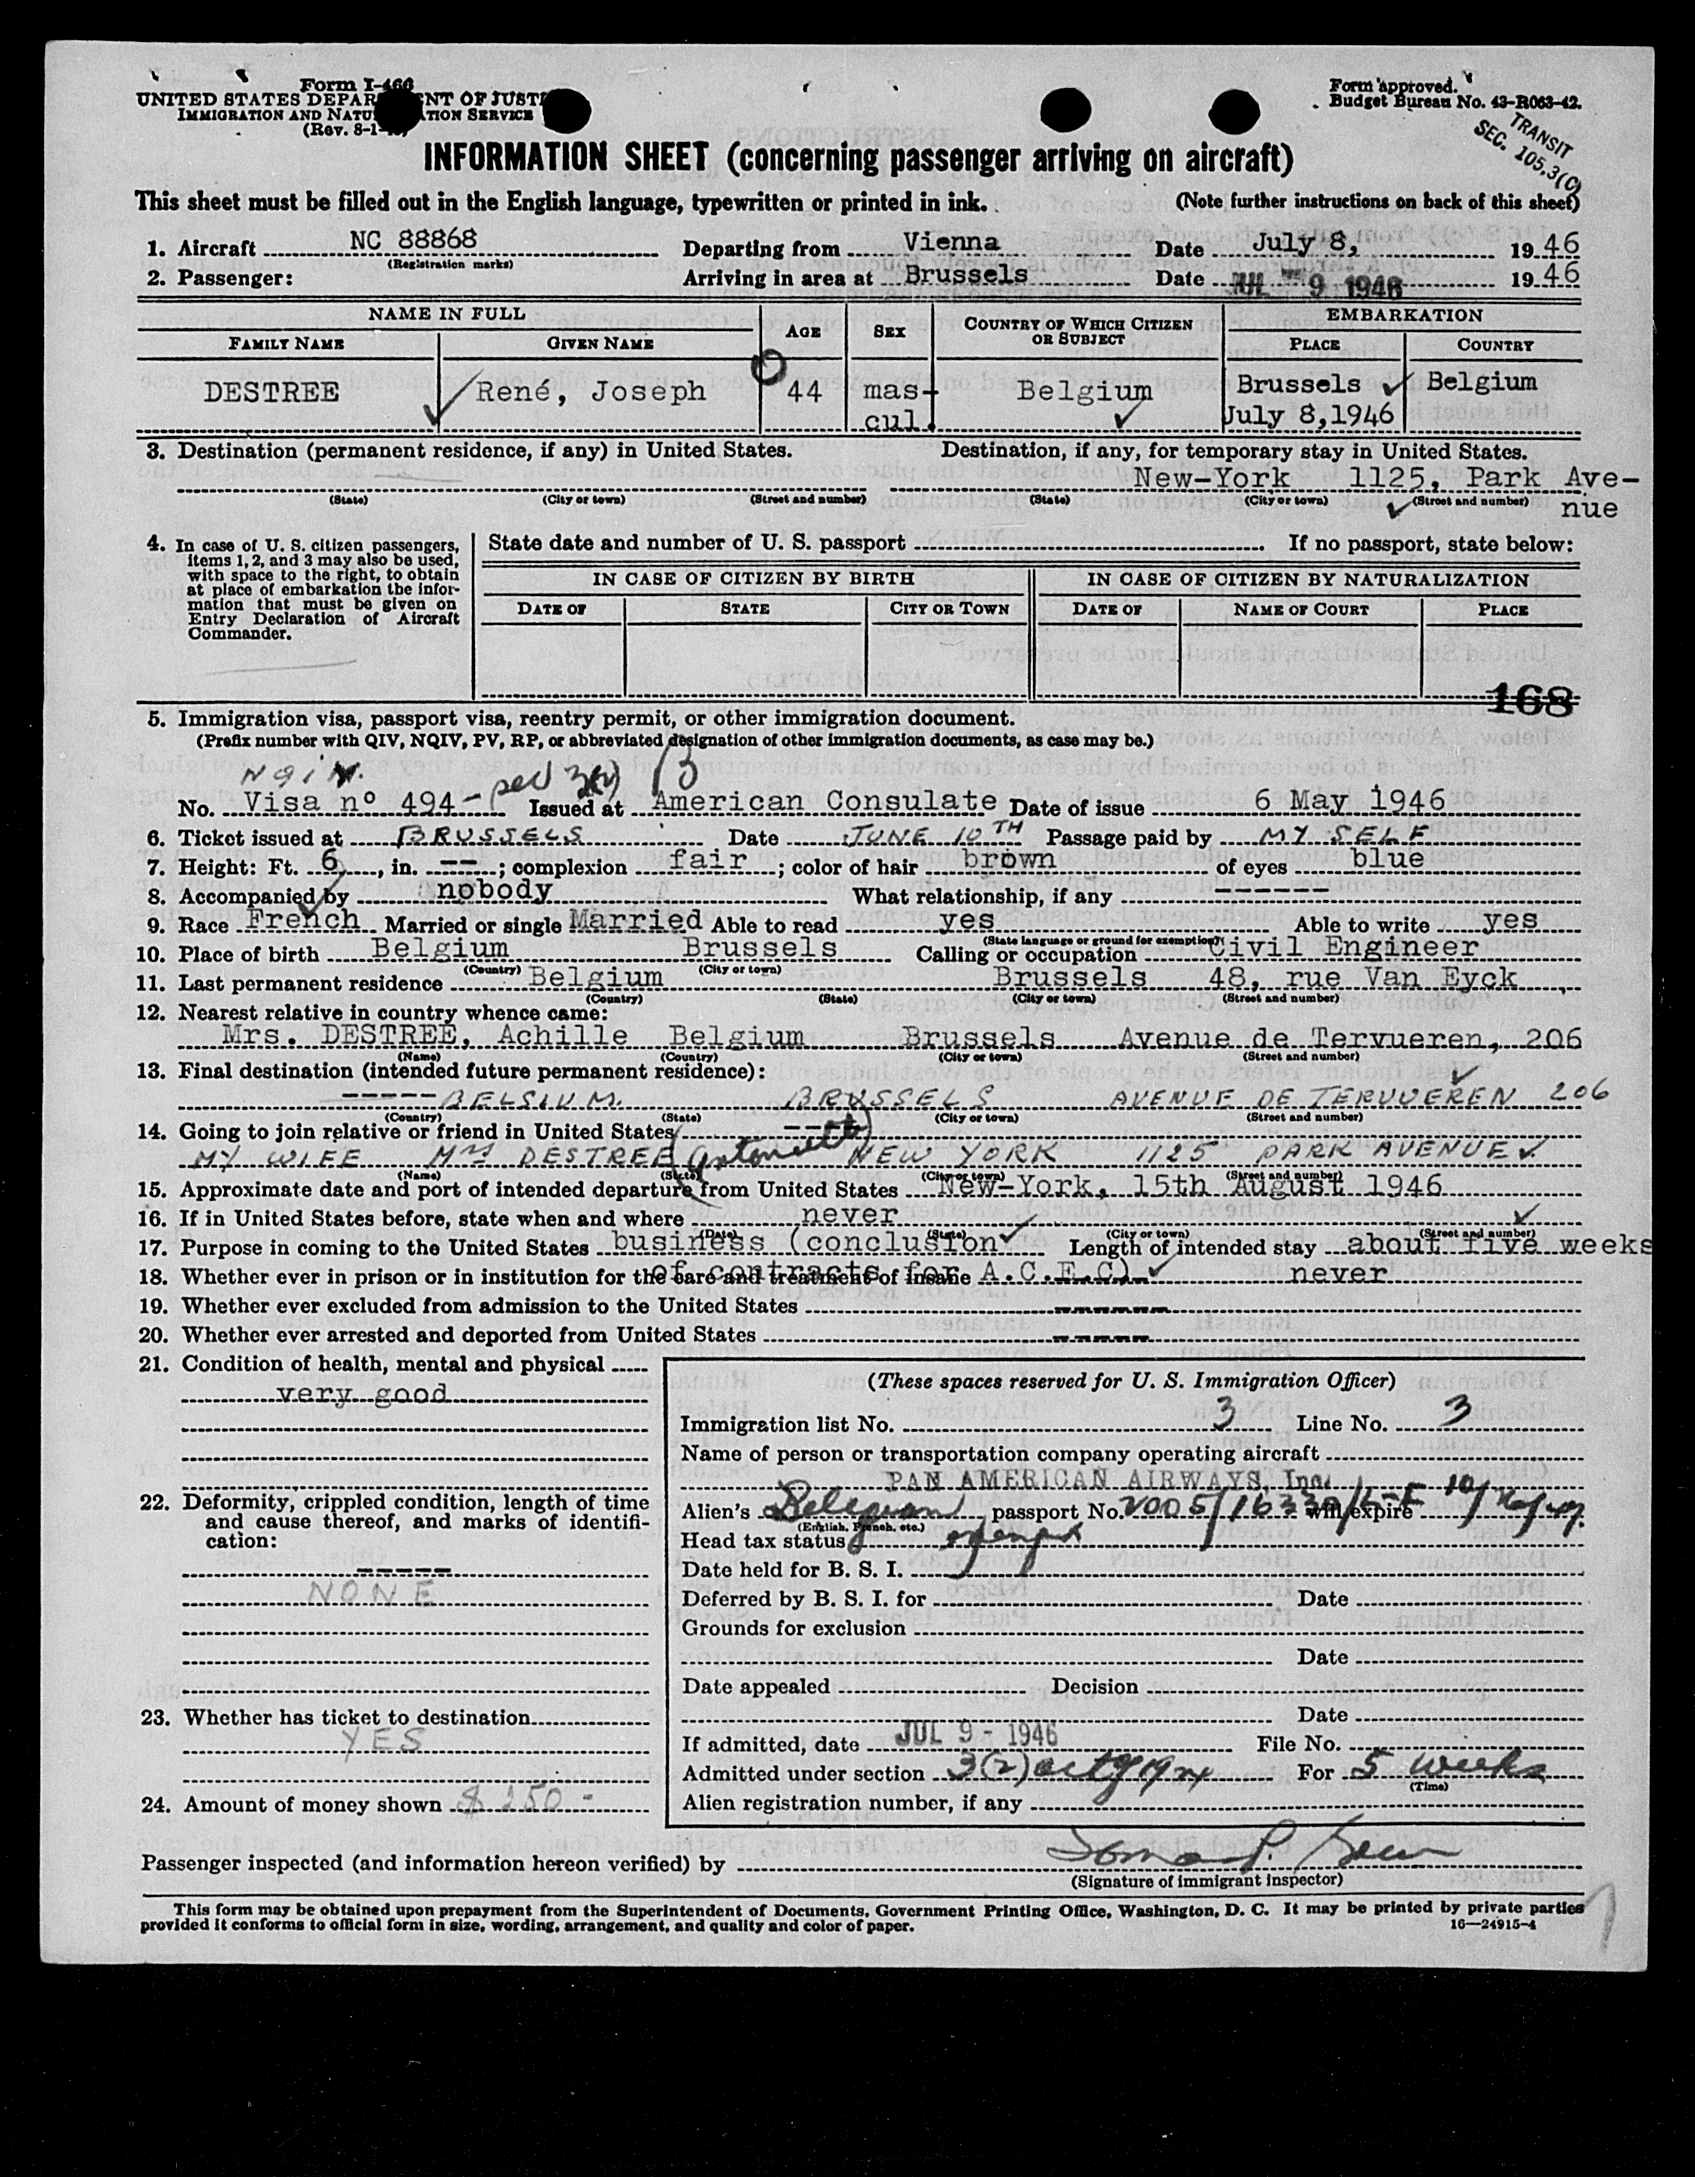 Form I-466
UNITED STATES DEPARTMENT OF JUSTICE
IMMIGRATION AND NATURALIZATION SERVICE
(Rev. 8-1-
Form approved.
Budget Bureau No. 43-R063-42.
TRANSIT
SEC. 105.3(C)
INFORMATION SHEET (concerning passenger arriving on aircraft)
This sheet must be filled out in the English language, typewritten or printed in ink. (Note further instructions on back of this sheet)
1. Aircraft NC 88868 Departing from Vienna Date July 8, 1946
(Registration marks)
2. Passenger: Arriving in area at Brussels Date JUL 9 1946 1946
NAME IN FULL AGE SEX COUNTRY OF WHICH CITIZEN OR SUBJECT EMBARKATION
FAMILY NAME GIVEN NAME PLACE COUNTRY
DESTREE René, Joseph 44 mas- Belgium Brussels Belgium
cul. July 8,1946
3. Destination (permanent residence, if any) in United States. Destination, if any, for temporary stay in United States.
New-York 1125, Park Ave-
(State) (City or town) (Street and number) (State) (City or town) (Street and number) nue
4. In case of U. S. citizen passengers, items 1, 2, and 3 may also be used, with space to the right, to obtain at place of embarkation the information that must be given on Entry Declaration of Aircraft Commander.
State date and number of U. S. passport If no passport, state below:
IN CASE OF CITIZEN BY BIRTH IN CASE OF CITIZEN BY NATURALIZATION
DATE OF STATE CITY OR TOWN DATE OF NAME OF COURT PLACE
168
5. Immigration visa, passport visa, reentry permit, or other immigration document.
(Prefix number with QIV, NQIV, PV, RP, or abbreviated designation of other immigration documents, as case may be.)
No. Visa n° 494 - Issued at American Consulate Date of issue 6 May 1946
6. Ticket issued at BRUSSELS Date JUNE 10TH Passage paid by MY SELF
7. Height: Ft. 6, in. --; complexion fair; color of hair brown of eyes blue
8. Accompanied by nobody What relationship, if any ------
9. Race French Married or single Married Able to read yes Able to write yes
(State language or ground for exemption)
10. Place of birth Belgium Brussels Calling or occupation Civil Engineer
(Country) (City or town)
11. Last permanent residence Belgium Brussels 48, rue Van Eyck
(Country) (State) (City or town) (Street and number)
12. Nearest relative in country whence came:
Mrs. DESTREE, Achille Belgium Brussels Avenue de Tervueren, 206
(Name) (Country) (City or town) (Street and number)
13. Final destination (intended future permanent residence):
----- BELGIUM. BRUSSELS AVENUE DE TERVUEREN 206
(Country) (State) (City or town) (Street and number)
14. Going to join relative or friend in United States ----
MY WIFE Mrs DESTREE (Antoinette) NEW YORK 1125 PARK AVENUE
(Name) (State) (City or town) (Street and number)
15. Approximate date and port of intended departure from United States New-York, 15th August 1946
16. If in United States before, state when and where never
(Date) (State) (City or town) (Street and number)
17. Purpose in coming to the United States business (conclusion Length of intended stay about five weeks
of contracts for A.C.E.C)
18. Whether ever in prison or in institution for the care and treatment of insane never
19. Whether ever excluded from admission to the United States -----
20. Whether ever arrested and deported from United States -----
21. Condition of health, mental and physical
very good
22. Deformity, crippled condition, length of time and cause thereof, and marks of identification:
-----
NONE
23. Whether has ticket to destination
YES
24. Amount of money shown $ 250 -
(These spaces reserved for U. S. Immigration Officer)
Immigration list No. 3 Line No. 3
Name of person or transportation company operating aircraft
PAN AMERICAN AIRWAYS, Inc.
Alien's Belgian passport No. will expire
(English, French, etc.)
Head tax status
Date held for B. S. I.
Deferred by B. S. I. for Date
Grounds for exclusion
Date
Date appealed Decision
Date
If admitted, date JUL 9 - 1946 File No.
Admitted under section 3(2) act of 1924 For 5 weeks
(Time)
Alien registration number, if any
Passenger inspected (and information hereon verified) by
(Signature of immigrant inspector)
This form may be obtained upon prepayment from the Superintendent of Documents, Government Printing Office, Washington, D. C. It may be printed by private parties
provided it conforms to official form in size, wording, arrangement, and quality and color of paper. 16—24915-4